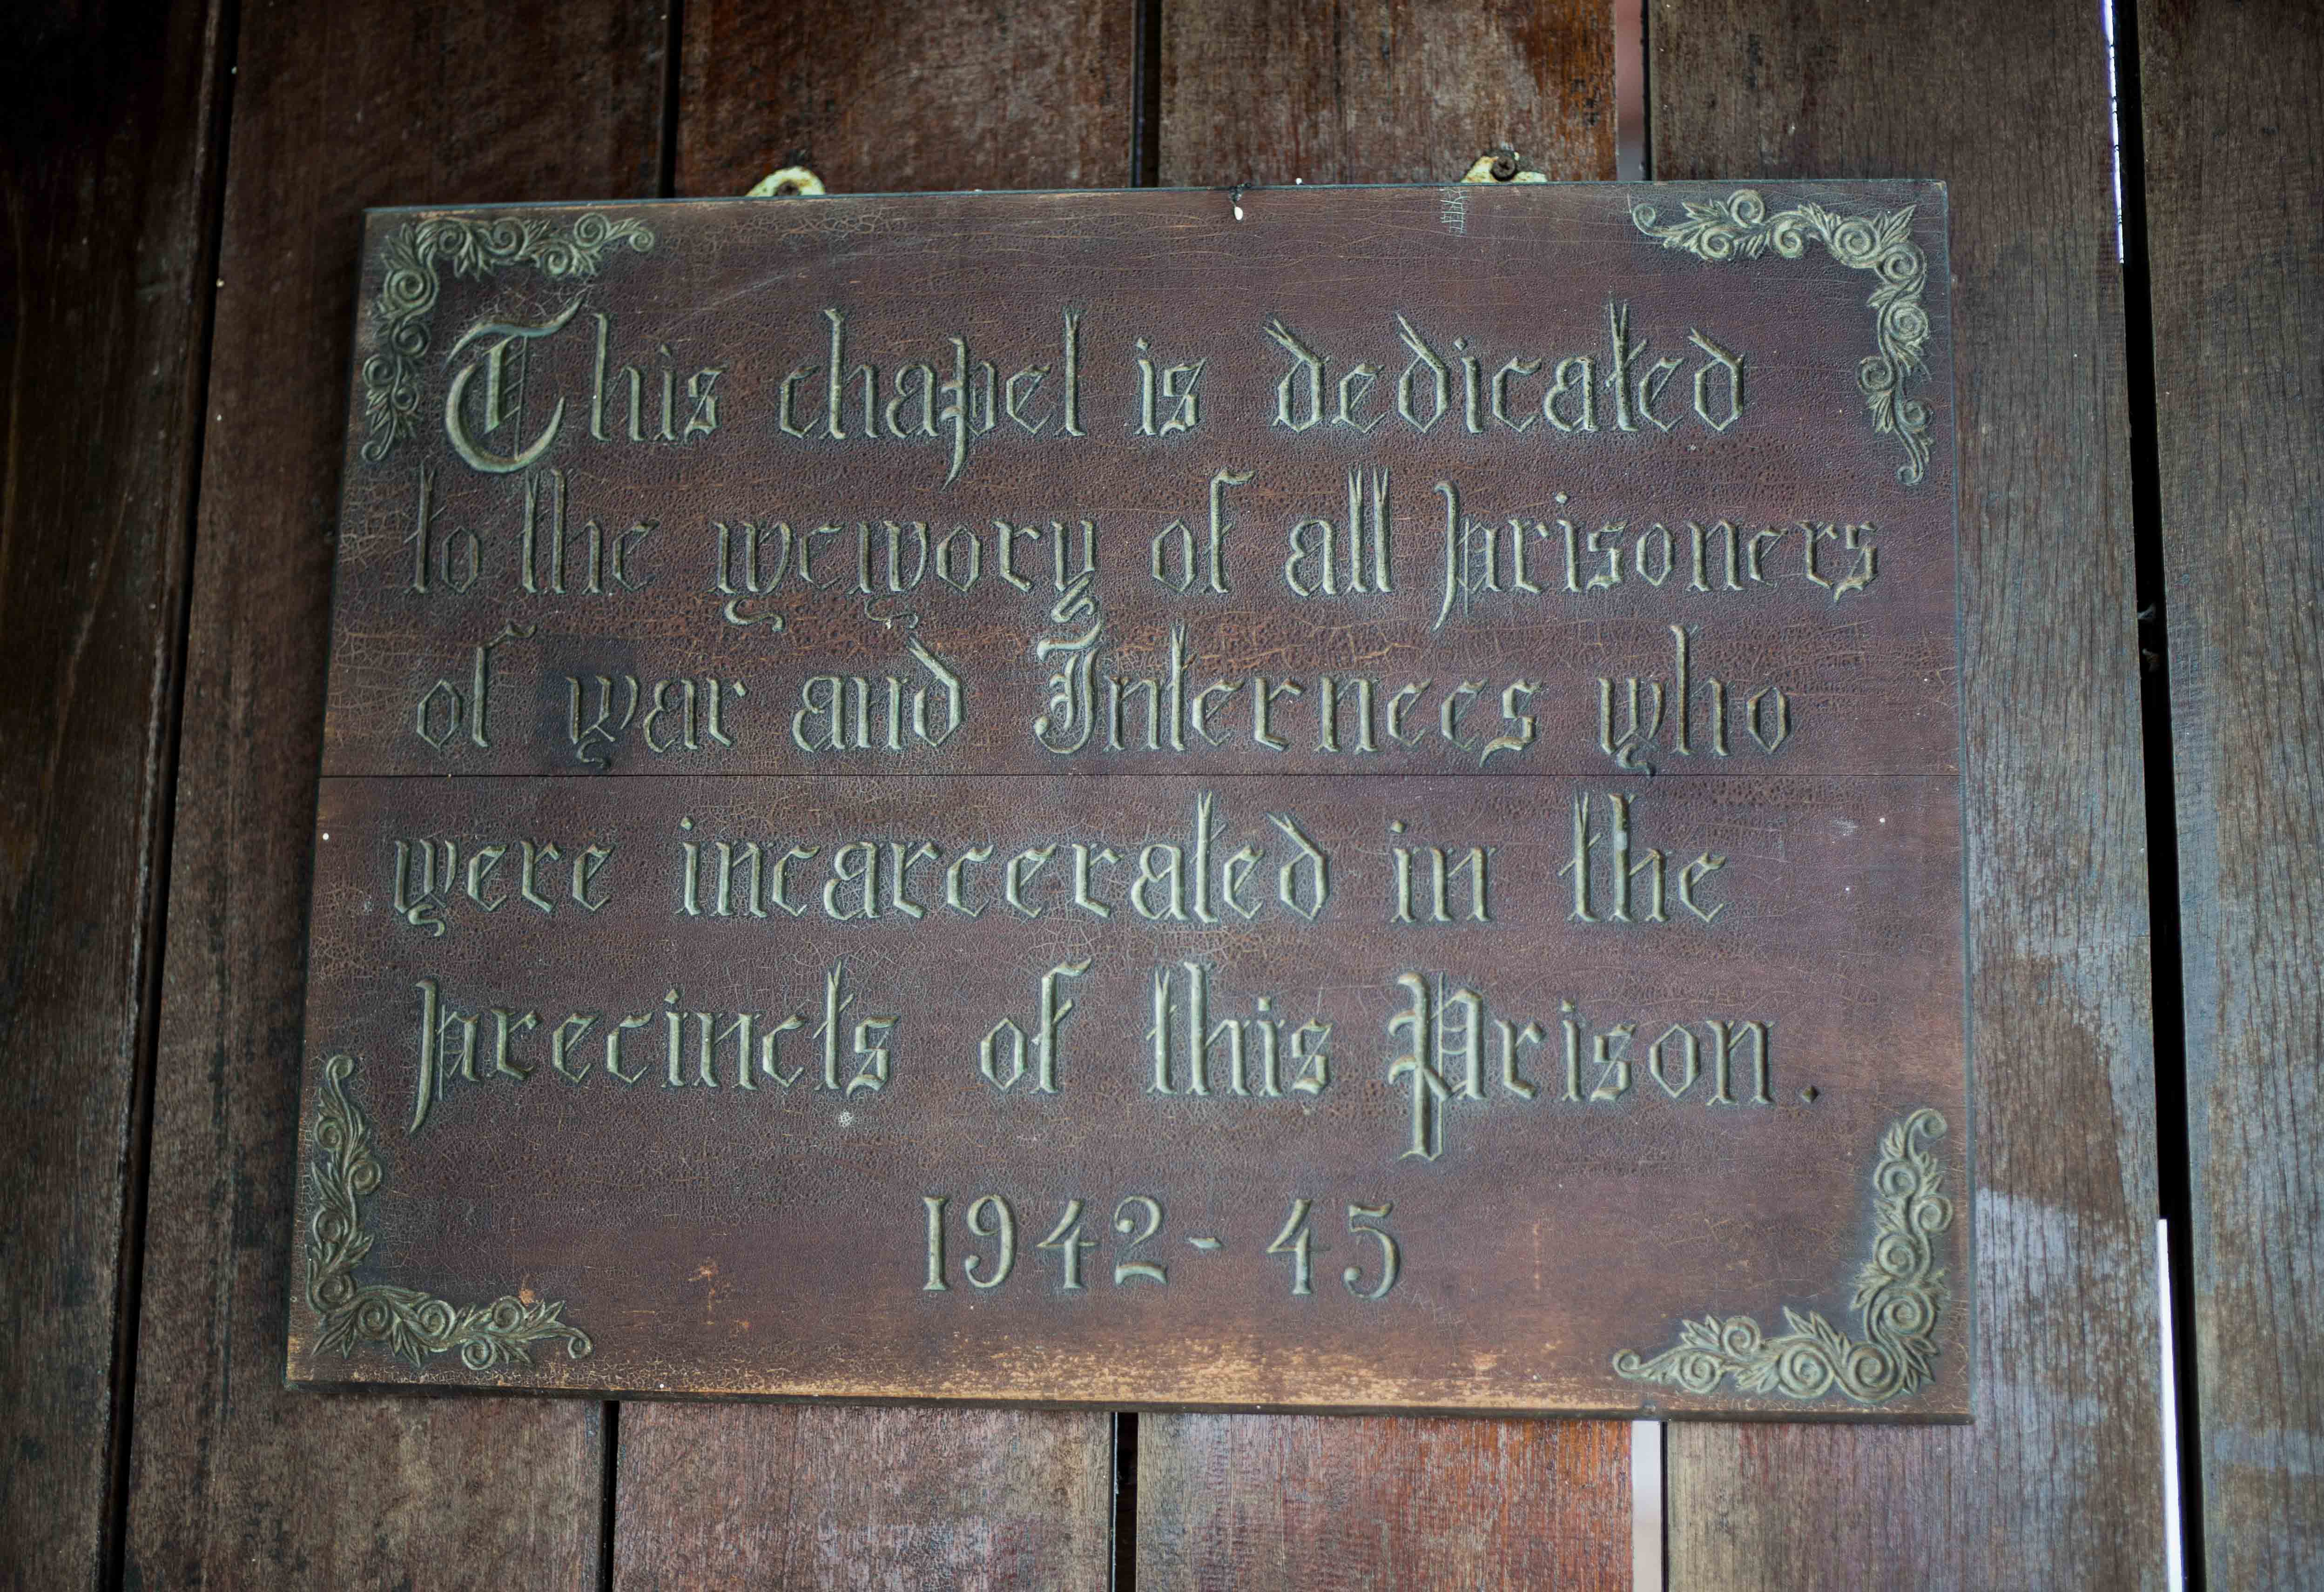 This chapel is dedicated
to the memory of all prisoners
of war and Internees who
were incarcerated in the
precincts of this Prison.
1942-45